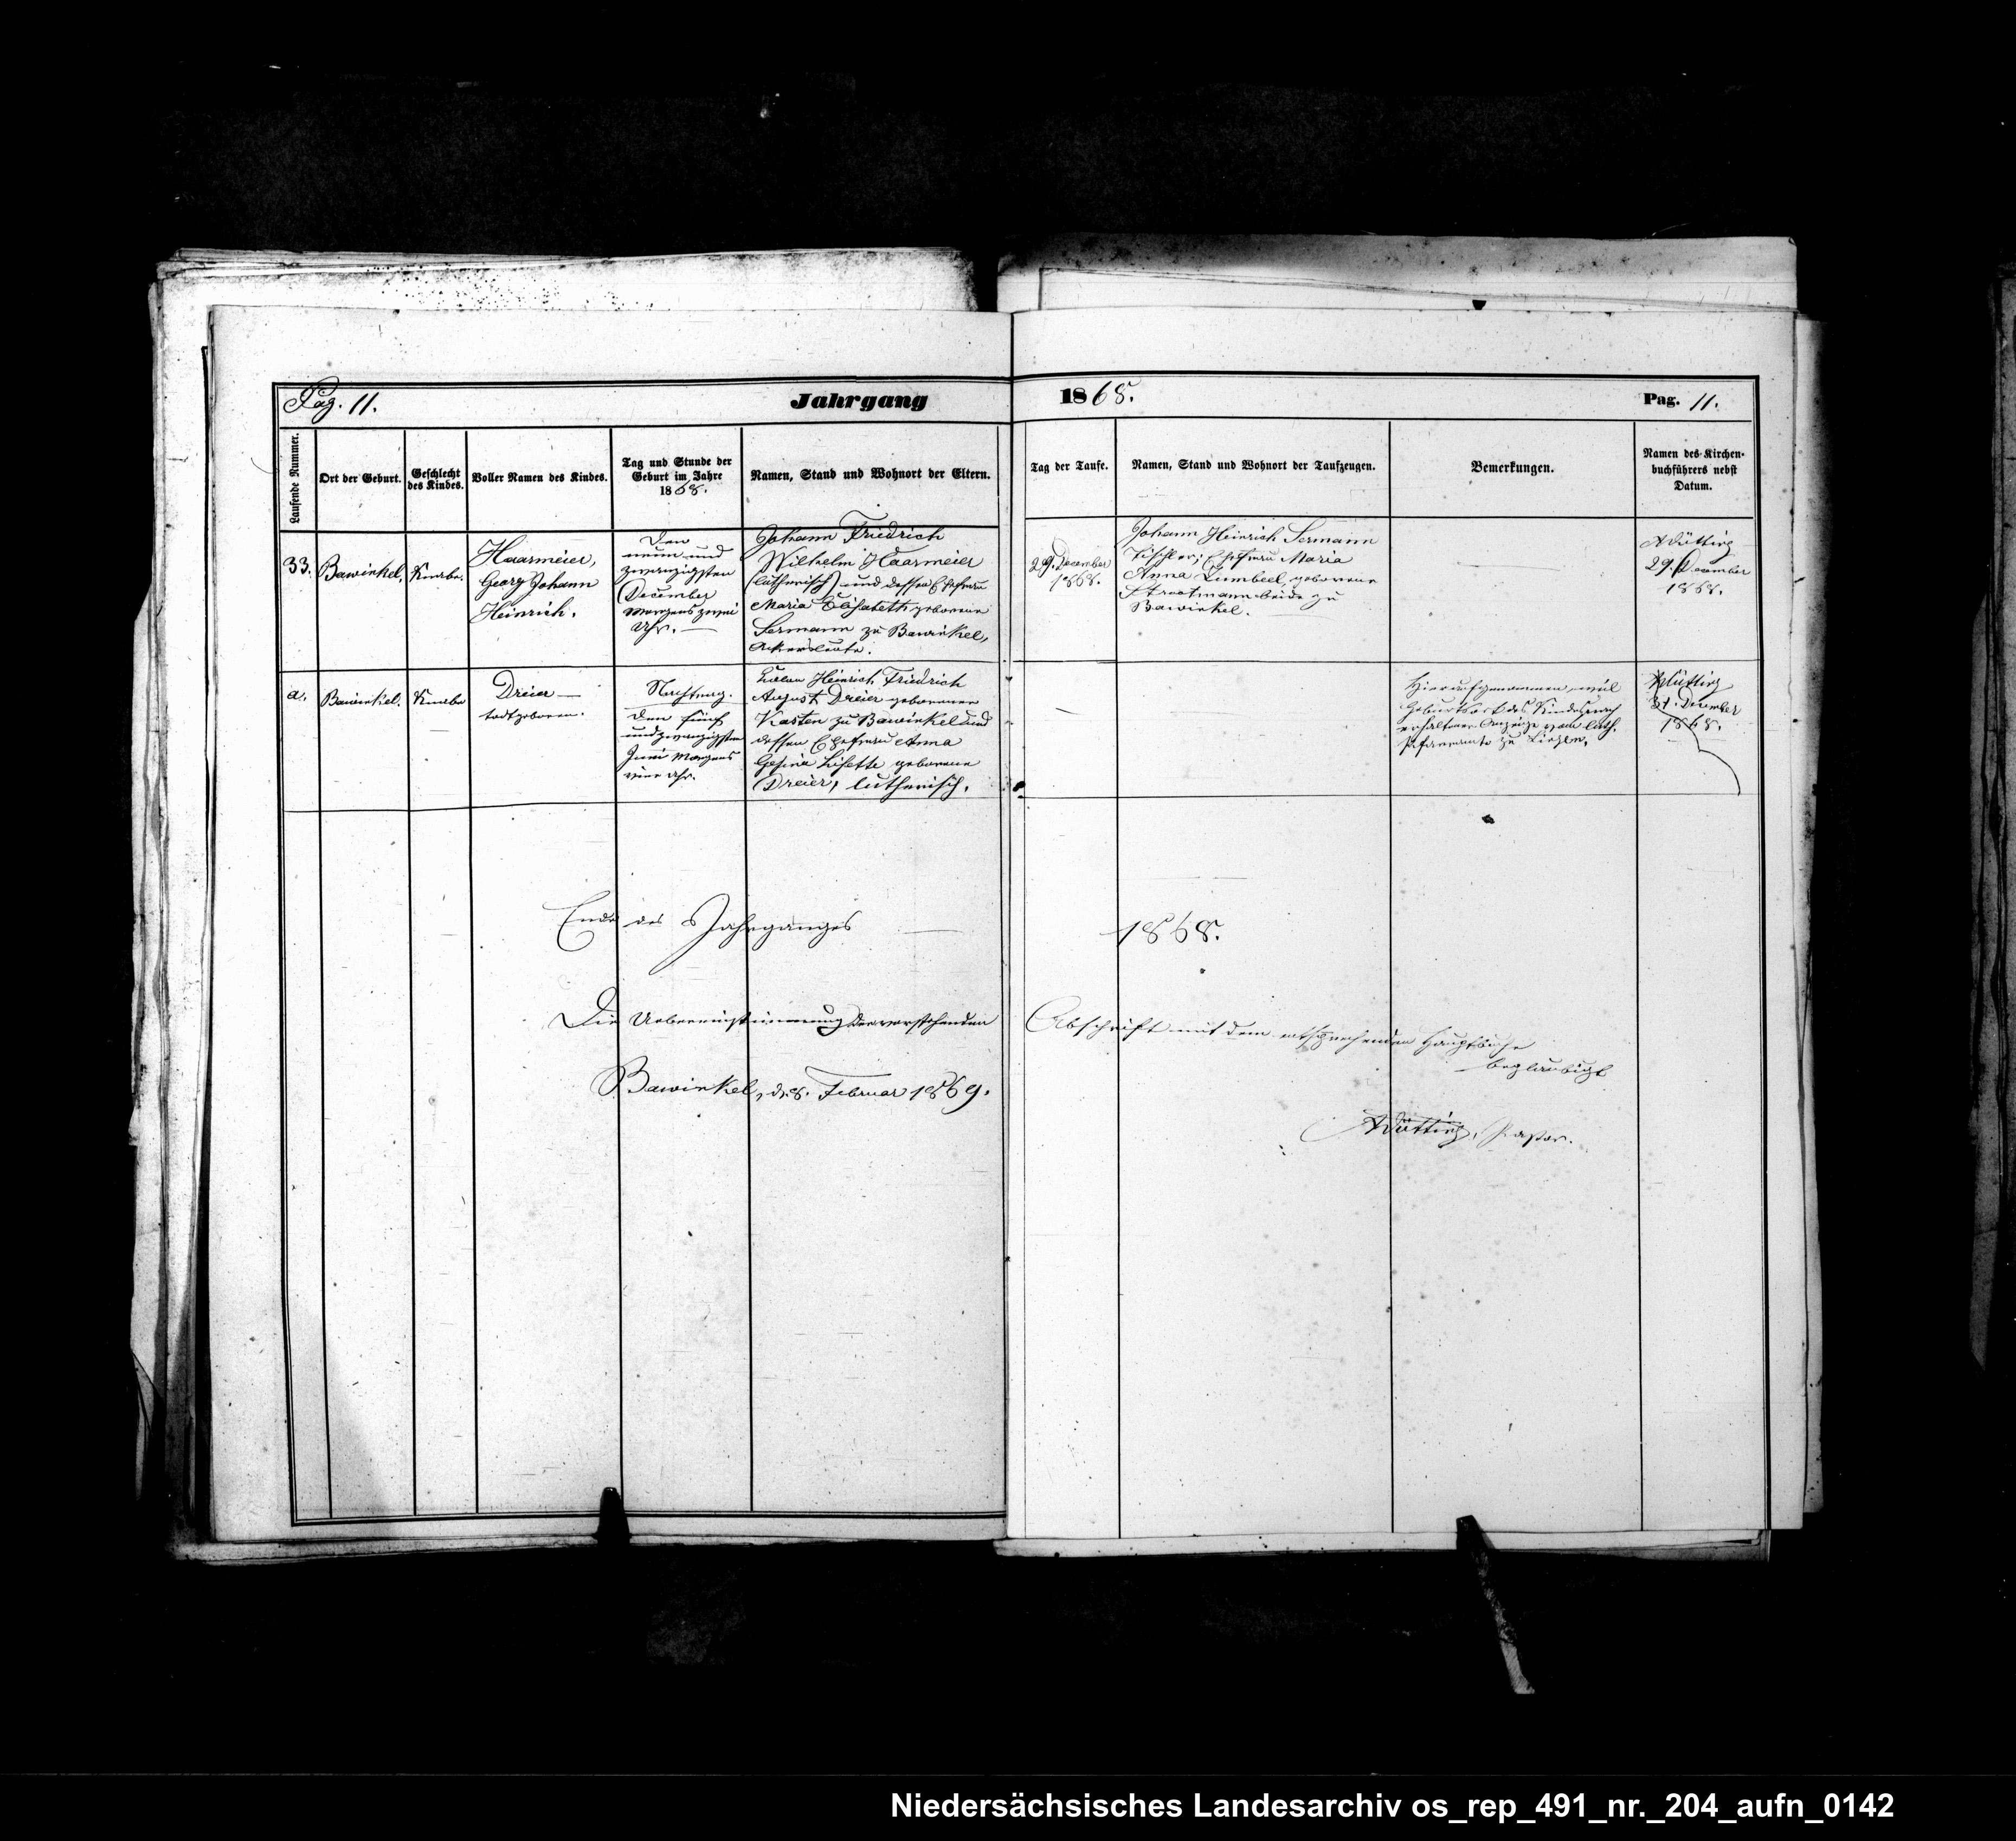 Pag. 11.
Jahrgang
1868.
Pag. 11.
Laufende Nummer.
Ort der Geburt.
Geschlecht
des Kindes.
Voller Namen des Kindes.
Tag und Stunde der
Geburt im Jahre
1868.
Namen, Stand und Wohnort der Eltern.
Tag der Taufe.
Namen, Stand und Wohnort der Taufzeugen.
Bemerkungen.
Namen des Kirchen-
buchführers nebst
Datum.
33.
Bawinkel,
Knabe.
Haarmeier,
Georg Johann
Heinrich.
Den
neun und
zwanzigsten
December
Morgens zwei
Uhr.
Johann Friedrich
Wilhelm Haarmeier
(lutherisch) und dessen Ehefrau
Maria Elisabeth geborene
Sermann zu Bawinkel,
Ackersleute.
29. December
1868.
Johann Heinrich Sermann
Tischler; Ehefrau Maria
Anna Lumbeel, geborene
Strootmann beide zu
Bawinkel.
29. December
1868.
a.
Bawinkel.
Knabe
Dreier
todtgeboren.
Nachtrag.
Den fünf
und zwanzigsten
Juni Morgens
vier Uhr.
Heinrich Friedrich
August Dreier geborener
Kasten zu Bawinkel und
dessen Ehefrau Anna
Gesina Lisette geborene
Dreier, lutherisch.
Hier aufgenommen weil
Geburtsort des Kindes, nach
erhaltener Anzeige vom luth.
Pfarramte zu
31. December
1868.
Ende des Jahrganges
1868.
Die Uebereinstimmung der vorstehenden
Abschrift mit dem entsprechenden Hauptbuche
beglaubigt
Bawinkel, d. 8. Februar 1869.
Pastor.
Niedersächsisches Landesarchiv os_rep_491_nr._204_aufn_0142